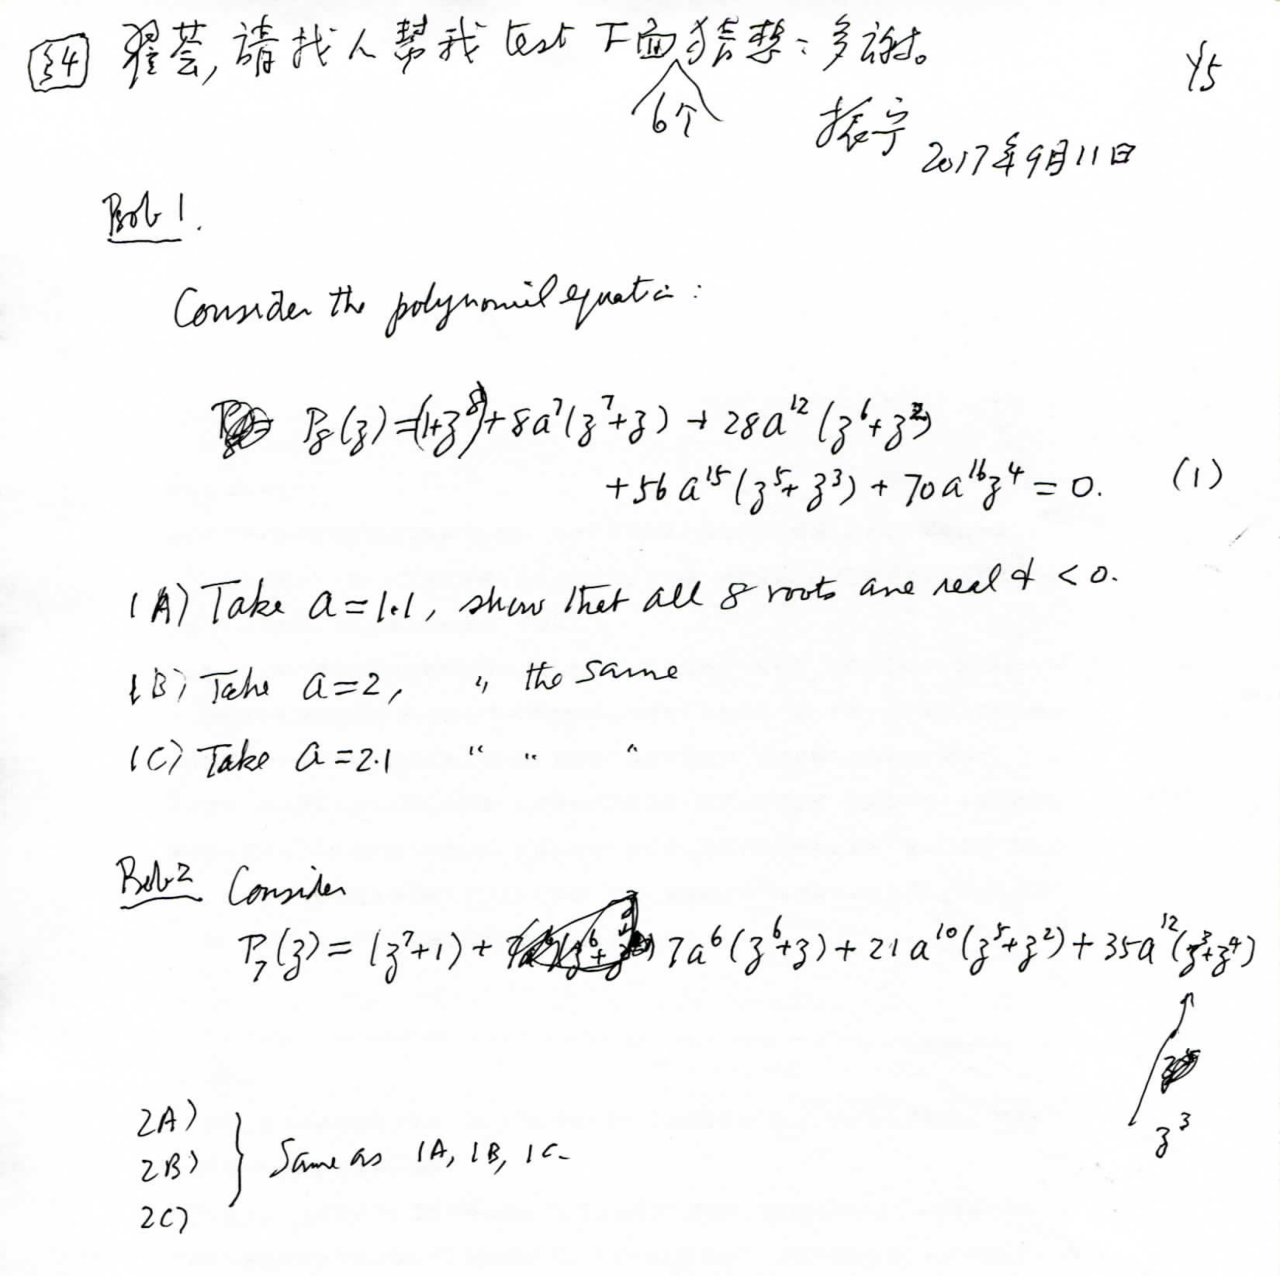 翟荟, 請找人幫我 test 下面6个猜想: 多謝。
Y5
振宁 2017年9月11日
Prob 1.
Consider the polynomial equation:
P₈(z) = (1+z⁸) + 8a⁷(z⁷+z) + 28a¹²(z⁶+z²)
+ 56a¹⁵(z⁵+z³) + 70a¹⁶z⁴ = 0. (1)
1A) Take a=1.1, show that all 8 roots are real & < 0.
1B) Take a=2, " the same
1C) Take a=2.1 " " "
Prob 2 Consider
P₇(z) = (z⁷+1) + 7a⁶(z⁶+z) + 21a¹⁰(z⁵+z²) + 35a¹²(z³+z⁴)
z³
2A)
2B) } Same as 1A, 1B, 1C.
2C)